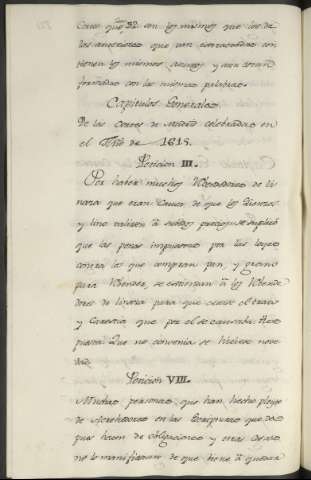 Cortes que 32 con los mismos que los de
las anteriores que van extractadas con
tienen los mismos asuntos y aun estan
formadas con las mismas palabras
Capitulos Generales
De las Cortes de Madrid celebradas en
el Año de 1615.
Peticion III.
Por haber muchos Vendedores de li
naza que eran causa de que los lienzos
y lino valiesen a subidos precios, se suplicó
que las penas impuestas por las leyes
contra los que compran pan, y grano
para Vender, se estiendan á los Vende
dores de linaza para que cesase el exceso
y Carestia que por el se causaba. Res
puesta: Que no convenia se hiciese nove
dad.
Peticion VIII.
Muchas personas, que han hecho pleyto
de Acrehedores en las Escripturas que des
pues hacen de obligaciones y otras deudas
no lo manifiestan de que viene á quedar